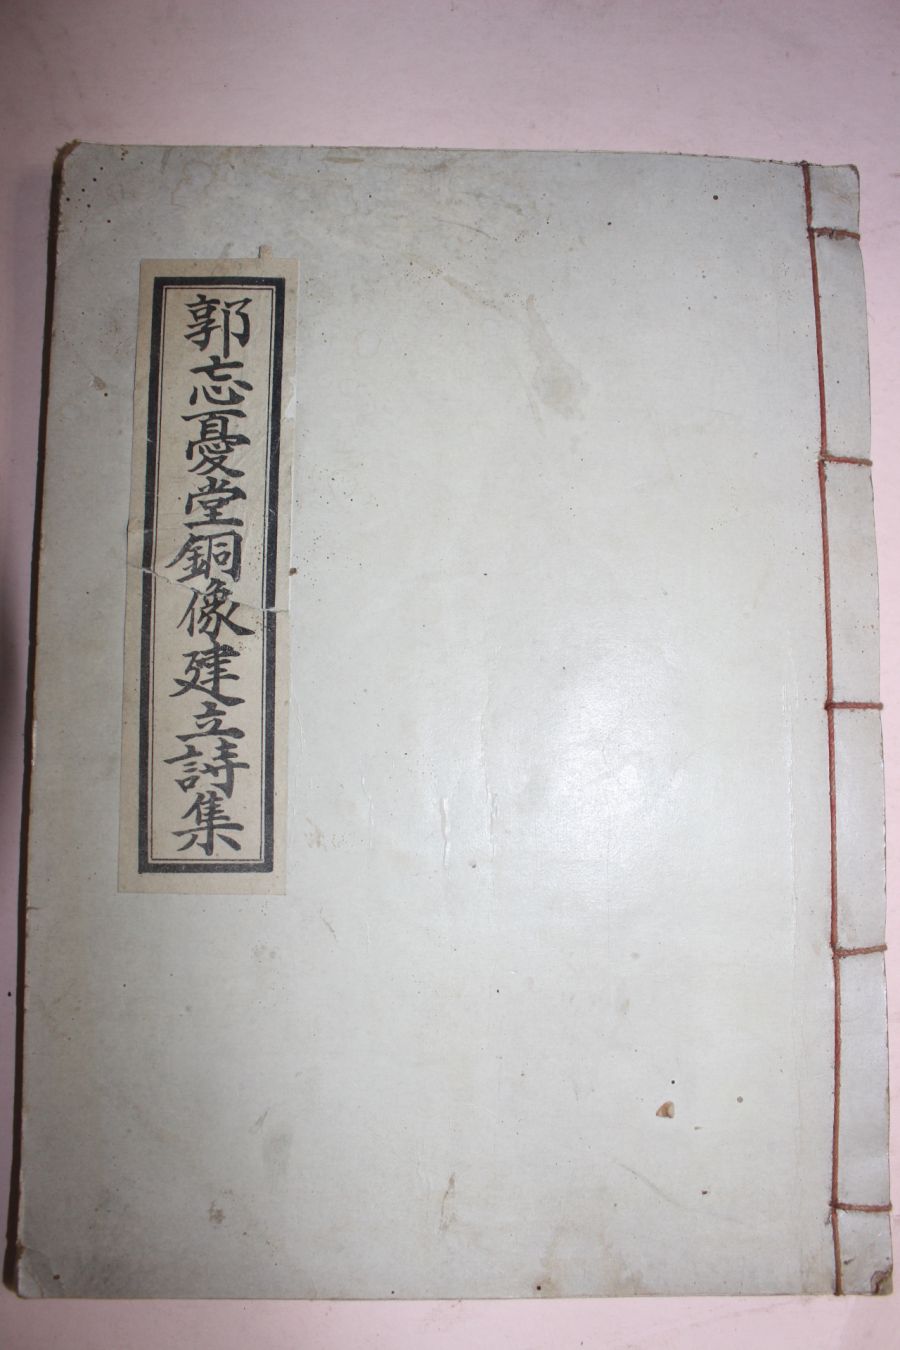 郭忘憂堂銅像建立詩集